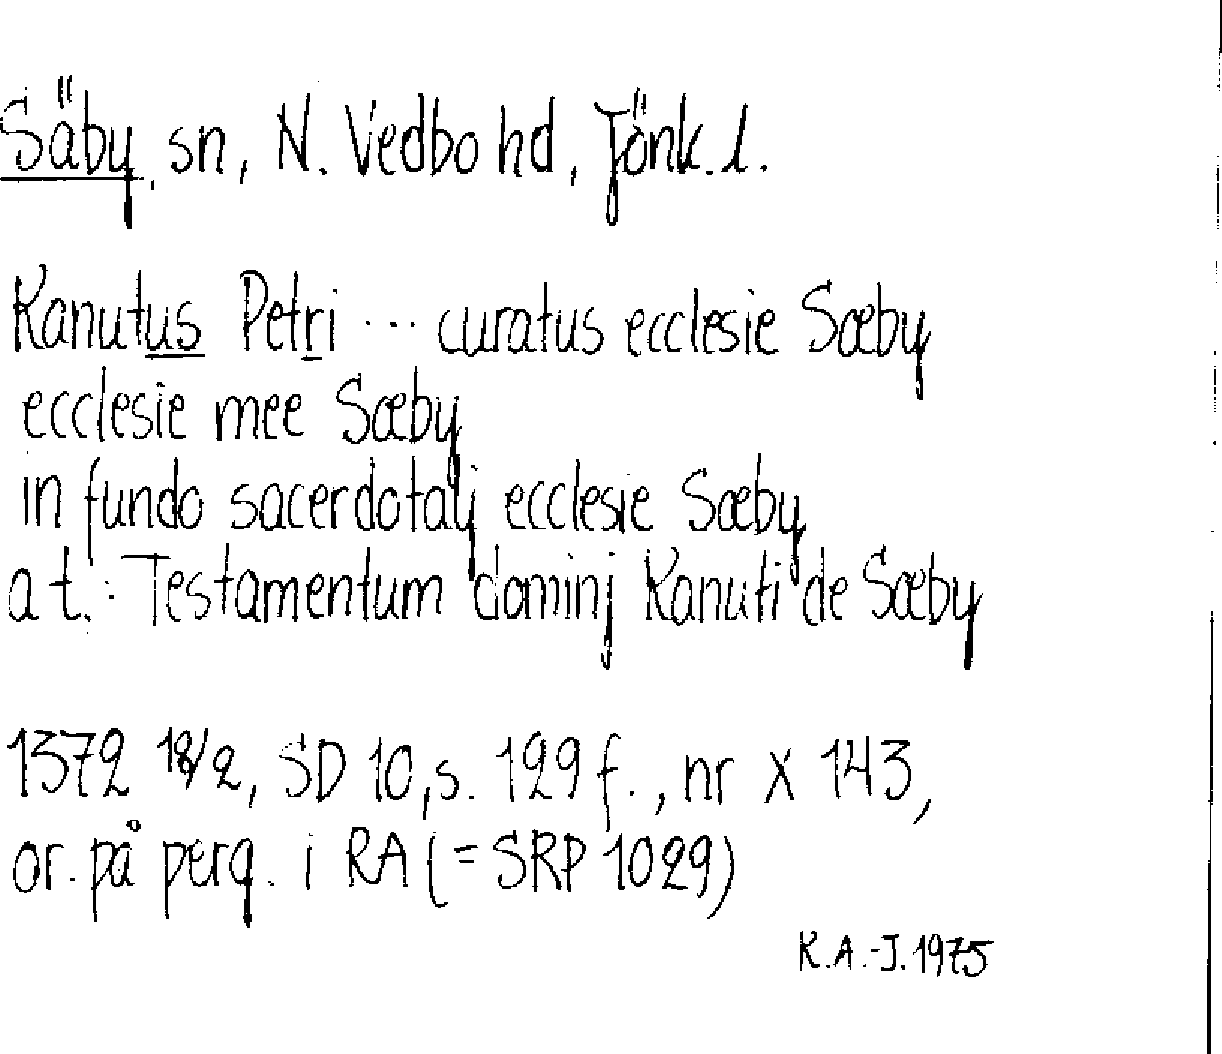 Säby, sn, N. Vedbo hd, Jönk. l.
Kanutus Petri ... curatus ecclesie Sæby
ecclesie mee Sæby
in fundo sacerdotalj ecclesie Sæby
a t.: Testamentum dominj Kanuti de Sæby
1372 18/2, SD 10, s. 129 f., nr X 143,
or. på perg. i RA (= SRP 1029)
K.A.-J. 1975